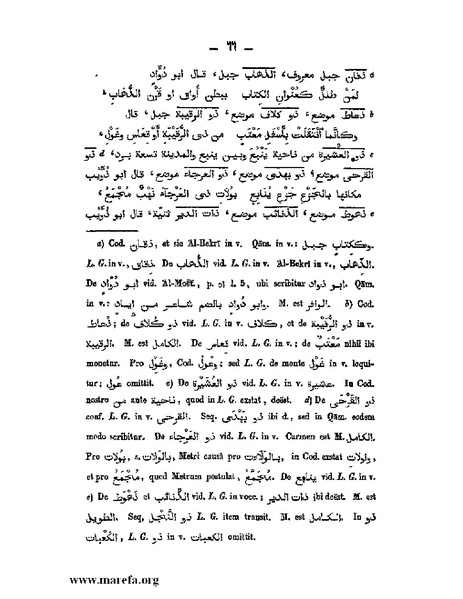 — ٦٦ —
a ذقان جبل معروف، الذهاب جبل، قال ابو دُوَّاد
لمَنْ طللٌ كعُنْوان الكتاب ببطن أُواق او قَرْن الذُّهاب،
b ذعاط موضع، ذو كلاف موضع، ذو الرقيبة جبل، قال
وكأنّما ٱنتقلتْ بأَسفلِ مُعْتِبٍ من ذى الرُّقَيْبة أَوْ قِعَاس وُعُول،
c ذى العُشَيْرة من ناحية يَنْبُع وبين ينبع والمدينة تسعة برد، d ذو
القرحى موضع، ذو يهدى موضع، ذو العرجاء موضع، قال ابو ذُوَيْب
فكانها بالجِزْع جِزْعِ يُنابِع بولات ذى العرجاء نَهْبٌ مُجْمَعُ،
e ذعوط موضع، الذنائب موضع، ذات الدير ثنيّة، قال ابو ذُوَيْب
a) Cod. ذقان, et sic Al-Bekri in v. Qâm. in v.: وككتاب جبل.
L. G. in v., ذقان. De الذُّهَاب vid. L. G. in v. Al-Bekrî in v., الذِّهاب.
De ابو دُوَّاد vid. Al-Mośt., p. ٥١ l. 5, ubi scribitur ابو دواد. Qâm.
in v.: وابو دُوَاد بالضم شاعر من اياد. M. est الوافر. b) Cod.
ذعاط; de ذو كِلَاف vid. L. G. in v. كلاف, et de ذو الرُّقَيْبة in v.
الرقيبة. M. est الكامل. De قعاس vid. L. G. in v.; de مُعْتِب nihil ibi
monetur. Pro وُعُول, Cod. وغَوْل; sed L. G. de monte غَوْل in v. loqui-
tur; غول omittit. c) De ذو العُشَيْرة vid. L. G. in v. عشيرة. In Cod.
nostro من ante ناحية, quod in L. G. exstat, deëst. d) De ذو القَرْحَى
conf. L. G. in v. القرحى. Seq. ذو يَهْدَى ibi d., sed in Qâm. eodem
modo scribitur. De ذو العَرْجاء vid. L. G. in v. Carmen est M. الكامل.
Pro بولات, s. بالولات, Metri causâ pro بالوُلَات, in Cod. exstat واولات,
et pro مُجْمَع, quod Metrum postulat, مُجْتَمَع. De ينابع vid. L. G. in v.
e) De ذَعْوَط et الذَّنائب vid. L. G. in vocc.; ذات الدير ibi deëst. M. est
الطويل. Seq. ذو النَّجْل L. G. item transit. M. est الكامل. In ذو
الكَعَبات, L. G. ذو in v. الكعبات omittit.
www.marefa.org